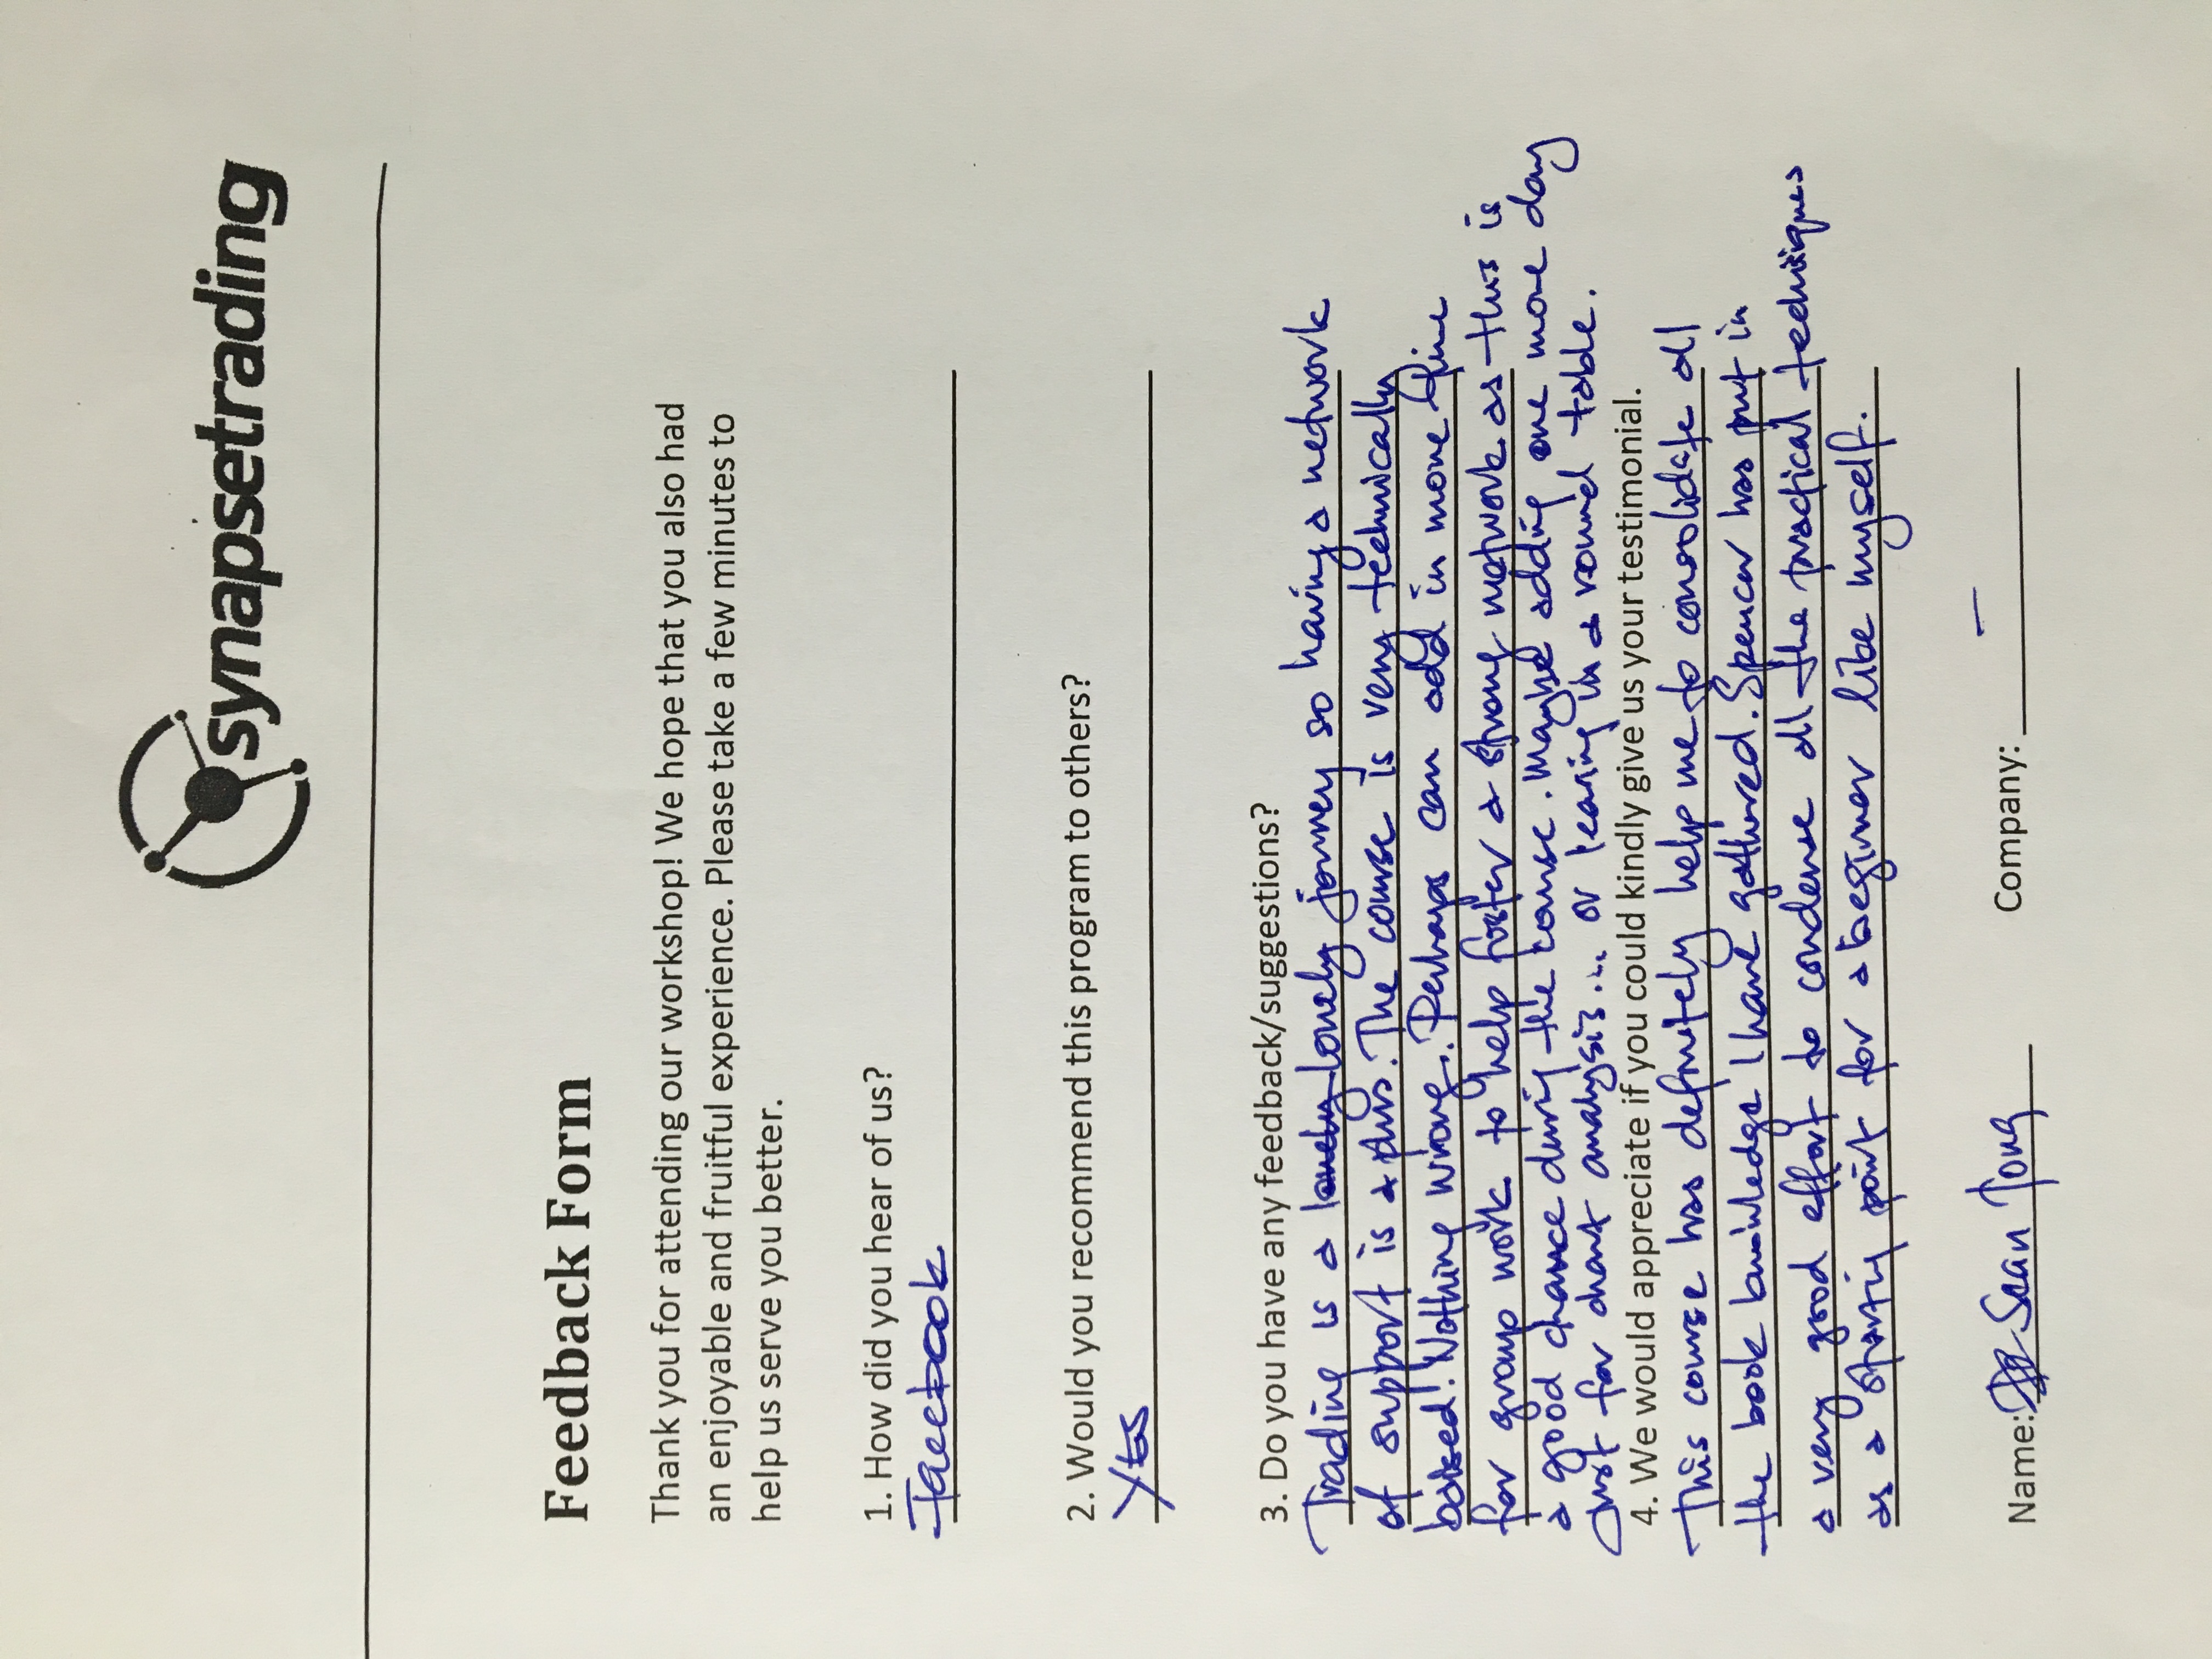 synapsetrading
Feedback Form
Thank you for attending our workshop! We hope that you also had
an enjoyable and fruitful experience. Please take a few minutes to
help us serve you better.
1. How did you hear of us?
Facebook
2. Would you recommend this program to others?
Yes
3. Do you have any feedback/suggestions?
Trading is a lonely journey so having a network
of support is a plus. The course is very technically
based! Nothing wrong. Perhaps can add in more time
for group work to help foster a strong network as this is
a good chance during the course. Maybe adding one more day
just for chart analysis... or in a round table.
4. We would appreciate if you could kindly give us your testimonial.
This course has definitely help me to consolidate all
the book knowledge I have gathered. Spencer has put in
a very good effort to condense all the practical techniques
as a starting point for a beginner like myself.
Name: Sean Tong Company: –